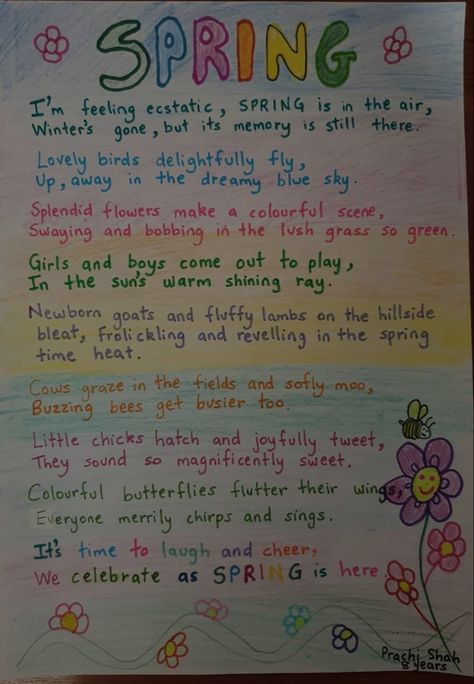 SPRING
I'm feeling ecstatic, SPRING is in the air,
Winter's gone, but its memory is still there.
Lovely birds delightfully fly,
Up, away in the dreamy blue sky.
Splendid flowers make a colourful scene,
Swaying and bobbing in the lush grass so green.
Girls and boys come out to play,
In the sun's warm shining ray.
Newborn goats and fluffy lambs on the hillside
bleat, frolickling and revelling in the spring
time heat.
Cows graze in the fields and sofly moo,
Buzzing bees get busier too.
Little chicks hatch and joyfully tweet,
They sound so magnificently sweet.
Colourful butterflies flutter their wings,
Everyone merrily chirps and sings.
It's time to laugh and cheer,
We celebrate as SPRING is here.
Prachi Shah
8 years